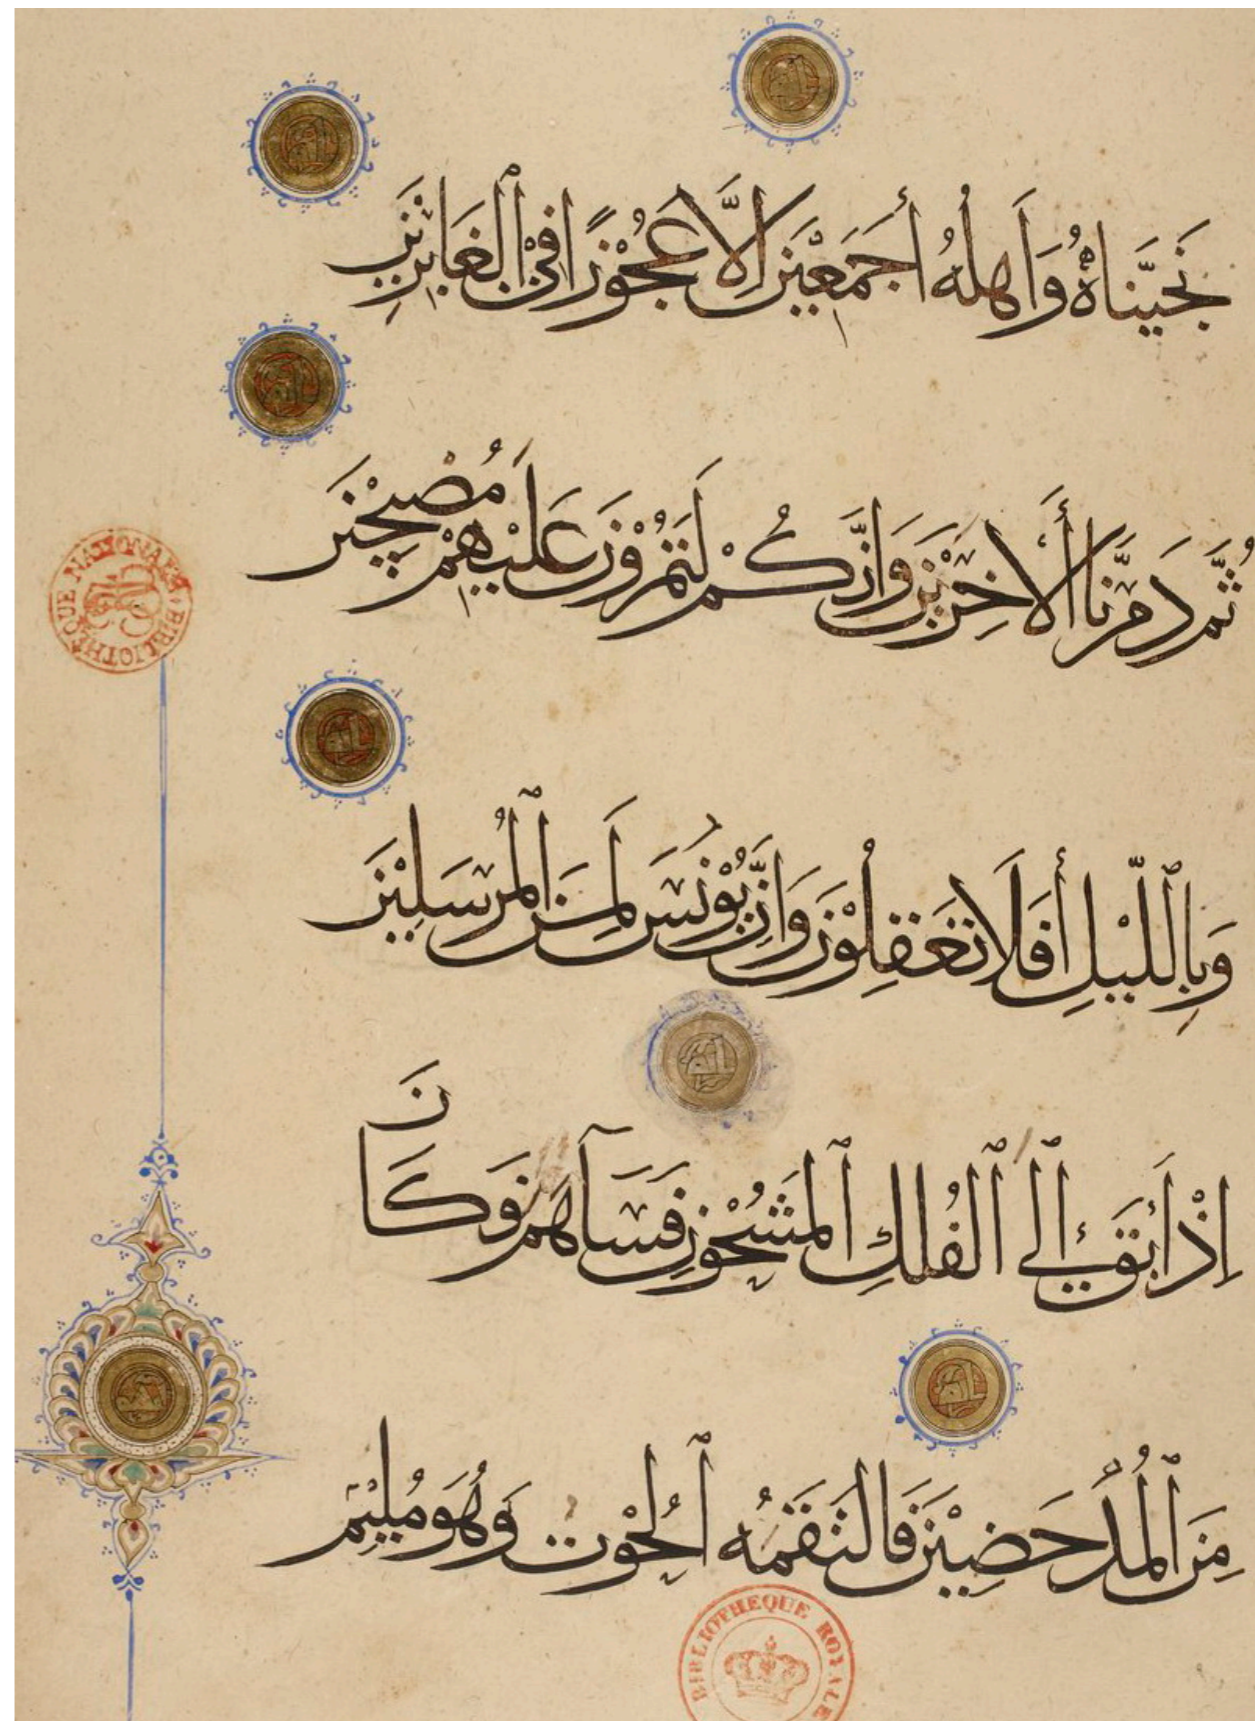 نَجَّيْنَاهُ وَأَهْلَهُ أَجْمَعِيْنَ اِلَّا عَجُوْزًا فِي ٱلْغَابِرِيْنَ
ثُمَّ دَمَّرْنَا ٱلْأَخَرِيْنَ وَاِنَّكُمْ لَتَمُرُّوْنَ عَلَيْهِمْ مُصْبِحِيْنَ
وَبِٱللَّيْلِ أَفَلَا تَعْقِلُوْنَ وَاِنَّ يُوْنُسَ لَمِنَ ٱلْمُرْسَلِيْنَ
اِذْ أَبَقَ اِلَى ٱلْفُلْكِ ٱلْمَشْحُوْنِ فَسَاهَمَ فَكَانَ
مِنَ ٱلْمُدْحَضِيْنَ فَالْتَقَمَهُ ٱلْحُوْتُ وَهُوَ مُلِيْمٌ
BIBLIOTHEQUE NATIONALE
BIBLIOTHEQUE ROYALE